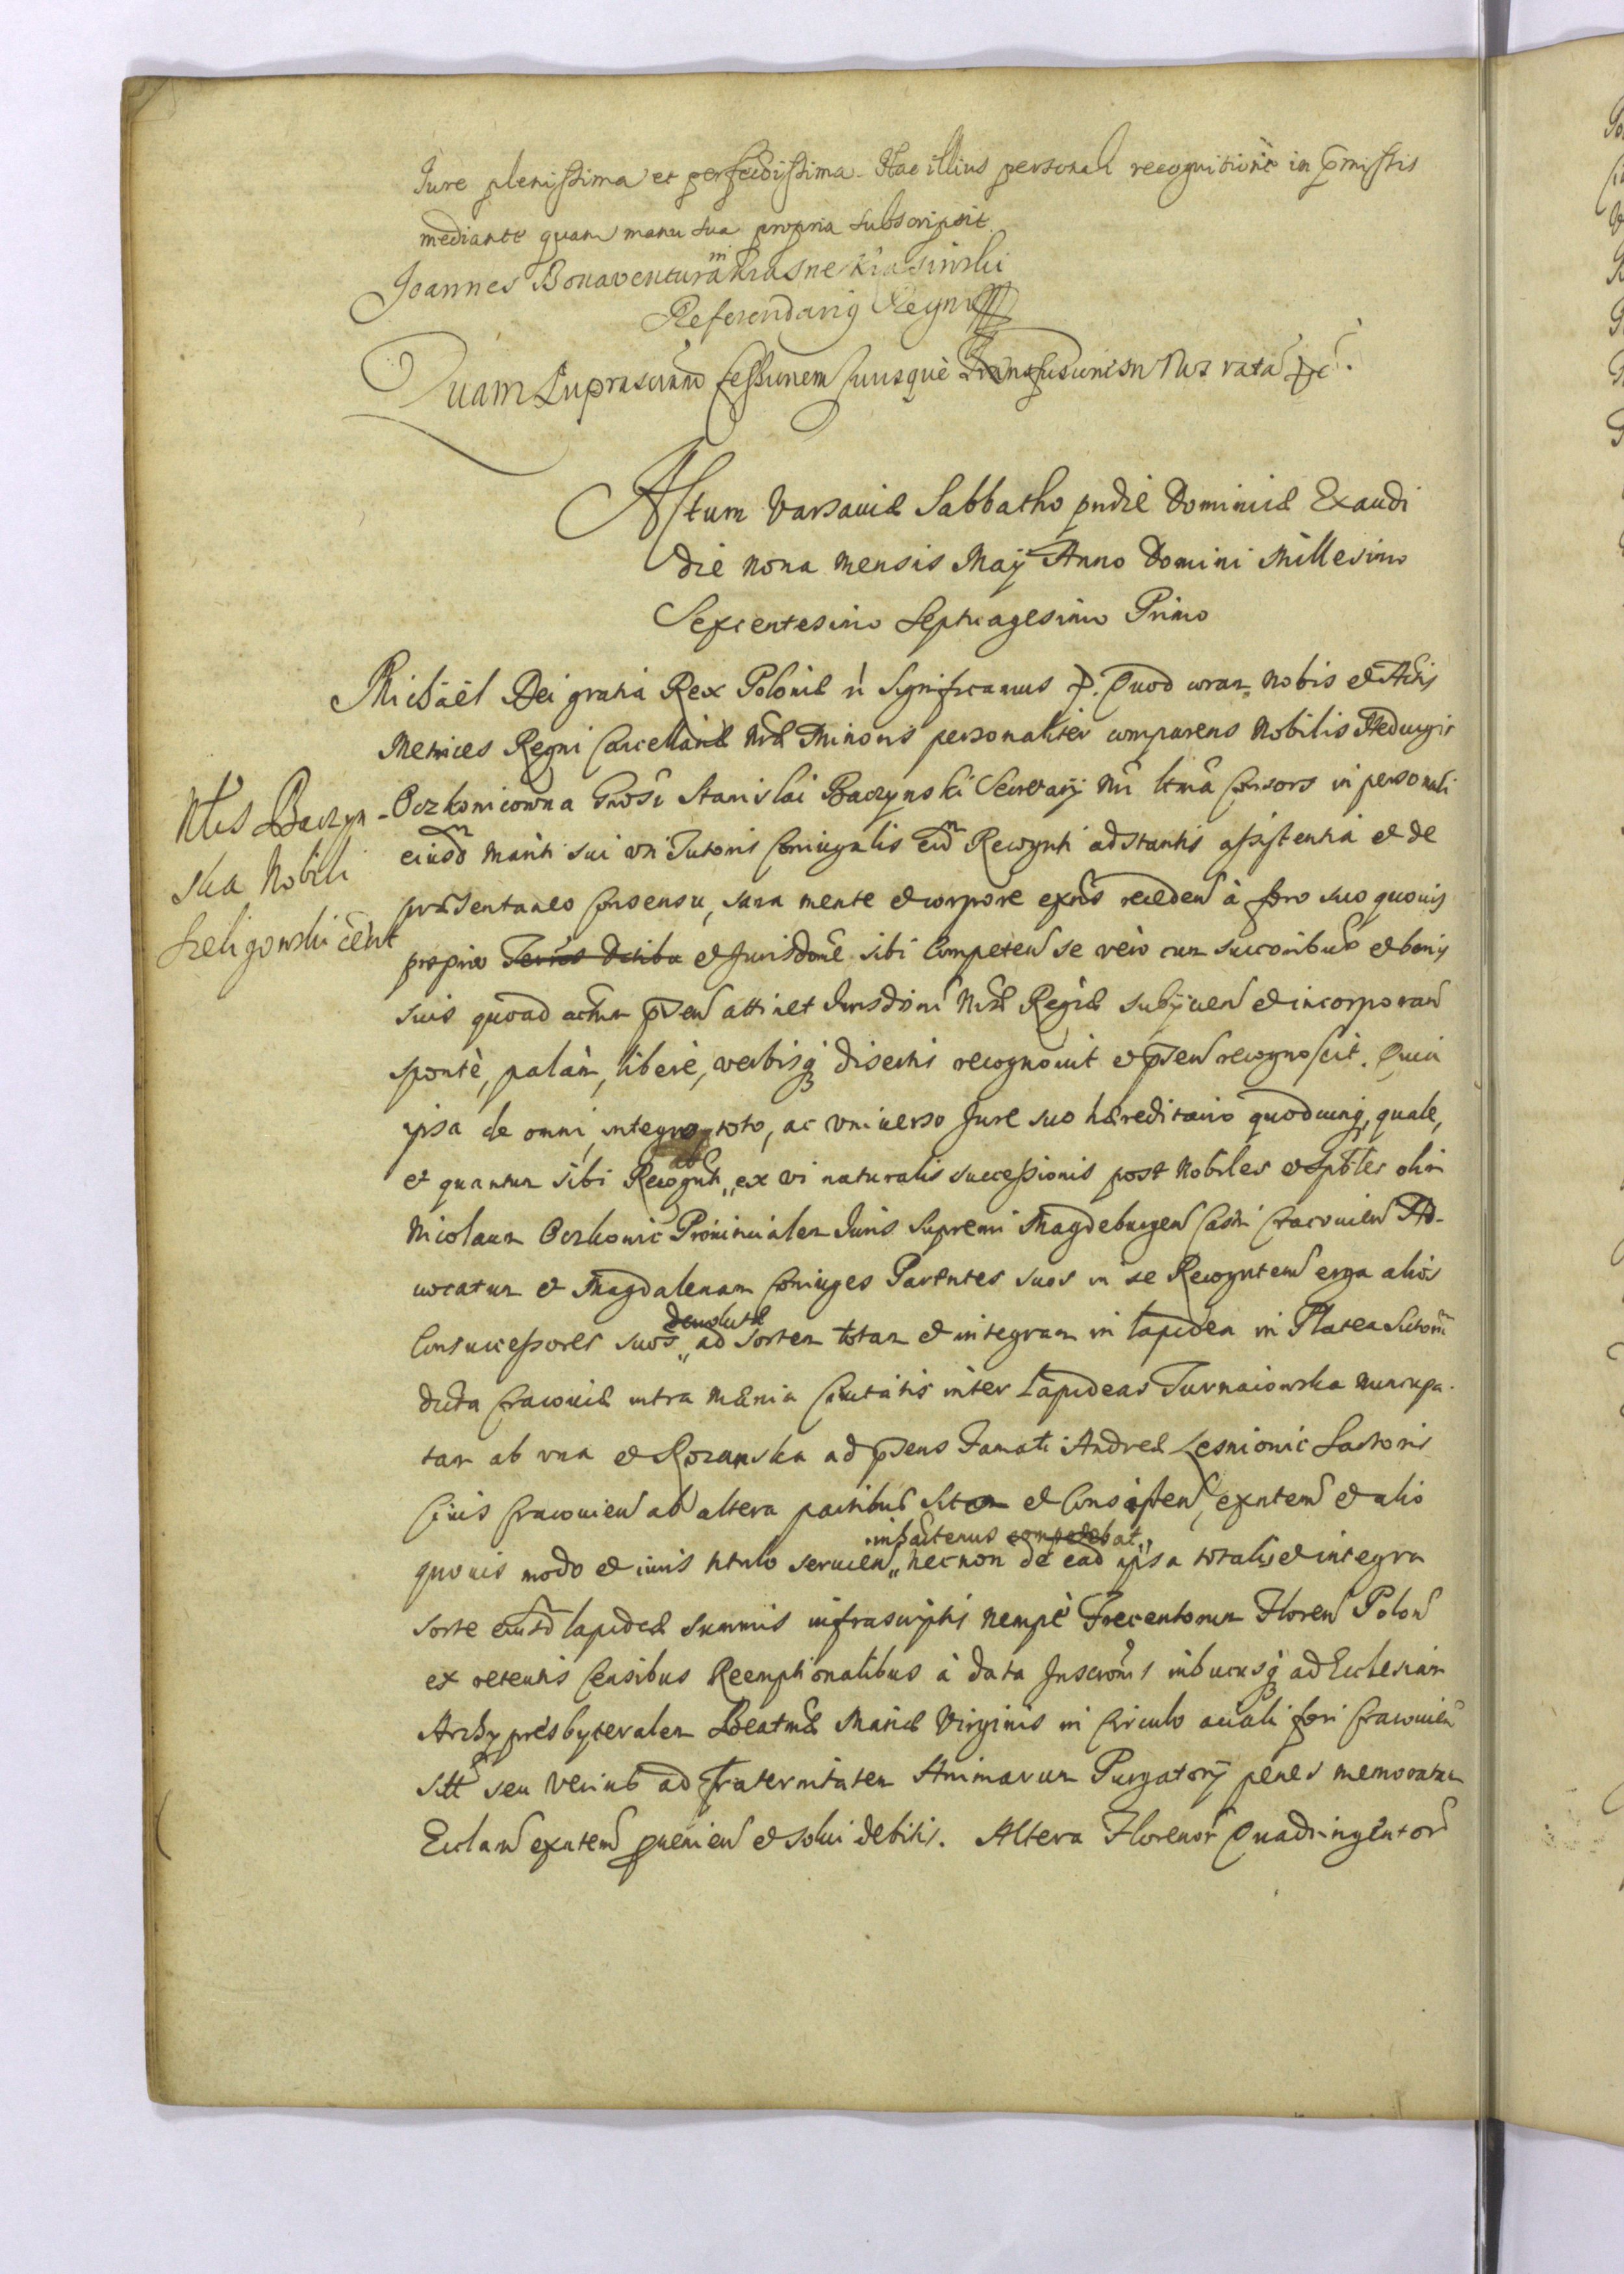 Jure plenissima et perfectissima. Hac illius personali recognitione in pmissis
mediante quam manu sua propria subscripsit
Joannes Bonaventura in Krasne Krasinski
Referendarig Regni
Quam Suprascriptam Cessionem Jurisque Transfusionem Nos ratã
Actum Varsaviæ Sabbatho pridie Dominicæ Exaudi
die nona mensis Maij Anno Domini Millesimo
Sexcentesimo Septuagesimo Primo
Michäel Dei gratia Rex Poloniæ Significamus Quod coram Nobis et Actis
Metrices Regni Cancellariæ Nræ Minoris personaliter comparens Nobilis Hedvigis
Nblis Baczyn-
ska Nobili
Szeligowski cedit
Oczkonicowna Gnosi Stanislai Baczynski Secretarij Nri ltma Consors in personali
eiusd mariti sui vn Tutoris Coniugalis eid Recognti adstantis assistentia et de
præsentaneo consensu, sana mente et corpore exns receden à foro suo quovis
proprio et Jurisdone sibi Competen se vero cum succoribus et bonis
suis quoad actum psen attinet Jurisdioni Nræ Regiæ subijcien et incorporan
spontè, palàm, liberè, verbisq disertis recognovit et psen recognoscit. Quia
ipsa de omni, integro, toto, ac vniverso Jure suo hæreditario quodcunq, quale,
et quantum sibi Recognti ex vi naturalis successionis post Nobiles et spbles olim
Nicolaum Oczkonic Provincialem Juris Supremi Magdeburgen Castri Cracovien Ad-
vocatum et Magdalenam Coniuges Parentes suos in se Recognten erga alios
Consuccessores suos devolutæ ad sortem totam et integram in lapidea in Platea Sutorum
dicta Cracoviæ intra mænia Civitatis inter Lapideas Turnaiowska nuncupa-
tam ab vna et Rozanska ad psens Famati Andreæ Lesnionic Sartoris
Civis Cracovien ab altera partibus sitam et Consisten, exnten et alio
quovis modo et iuris titulo servien inhactenus competebat, necnon de ead ipsa totali et integra
sorte eiusd lapideæ summis infrascriptis nempè Trecentorum Floren Polon
ex retentis Censibus Reemptionalibus à data Inscronis inhucusq ad Ecclesiam
Archypresbyteralem Beatmæ Mariæ Virginis in Circulo aciali fori Cracovien
sitt seu verius ad Fraternitatem Animarum Purgatorij penes memoratam
Ecclam exnten pvenien et solvi debitis. Altera Florenor Quadringentor